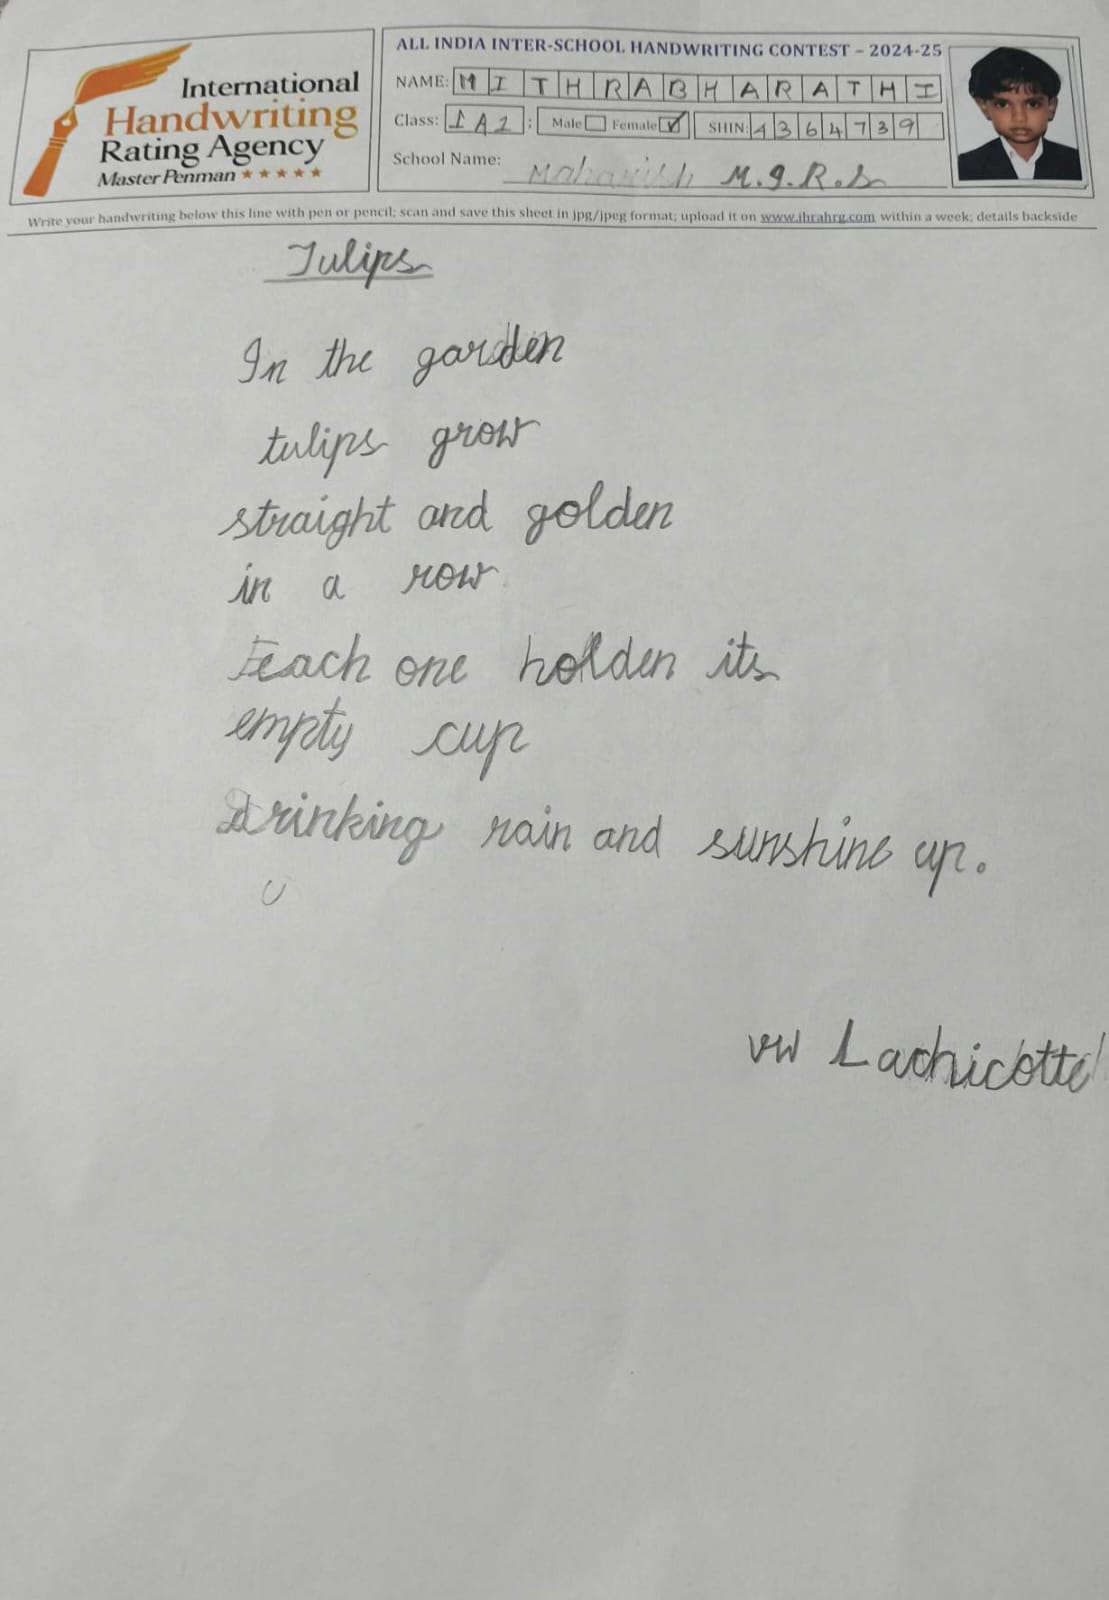 International
Handwriting
Rating Agency
Master Penman ★★★★★
ALL INDIA INTER-SCHOOL HANDWRITING CONTEST – 2024-25
NAME: MITHRABHARATHI
Class: I A1 : Male Female ✓ SHIN: 4364739
School Name: Maharishi M.g.R.s
Write your handwriting below this line with pen or pencil; scan and save this sheet in jpg/jpeg format; upload it on www.ihrahrg.com within a week; details backside
Tulips
In the garden
tulips grow
straight and golden
in a row
Eeach one holden its
empty cup
Drinking rain and sunshine up.
vw Lachicotte